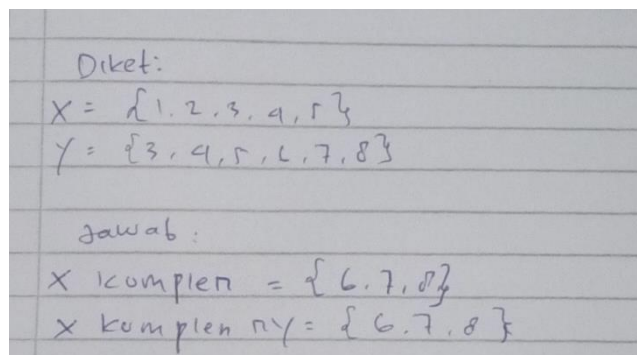 Diket:
X = {1.2.3.4,5}
Y = {3,4,5,6,7,8}
Jawab:
X komplen = {6.7.8}
X komplen ∩ Y = {6.7.8}